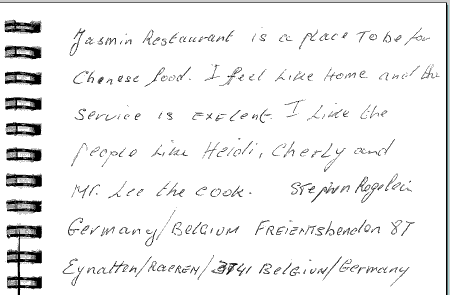 Jasmin Restaurant is a place To be for
Chenese food. I feel Like Home and the
Service is EXELENT. I Like the
people Like Heidi, Cherly and
Mr. Lee the cook. Stephen
Germany/BELGIUM 8T
Eynatten/RAEREN/ BELGIUM/Germany